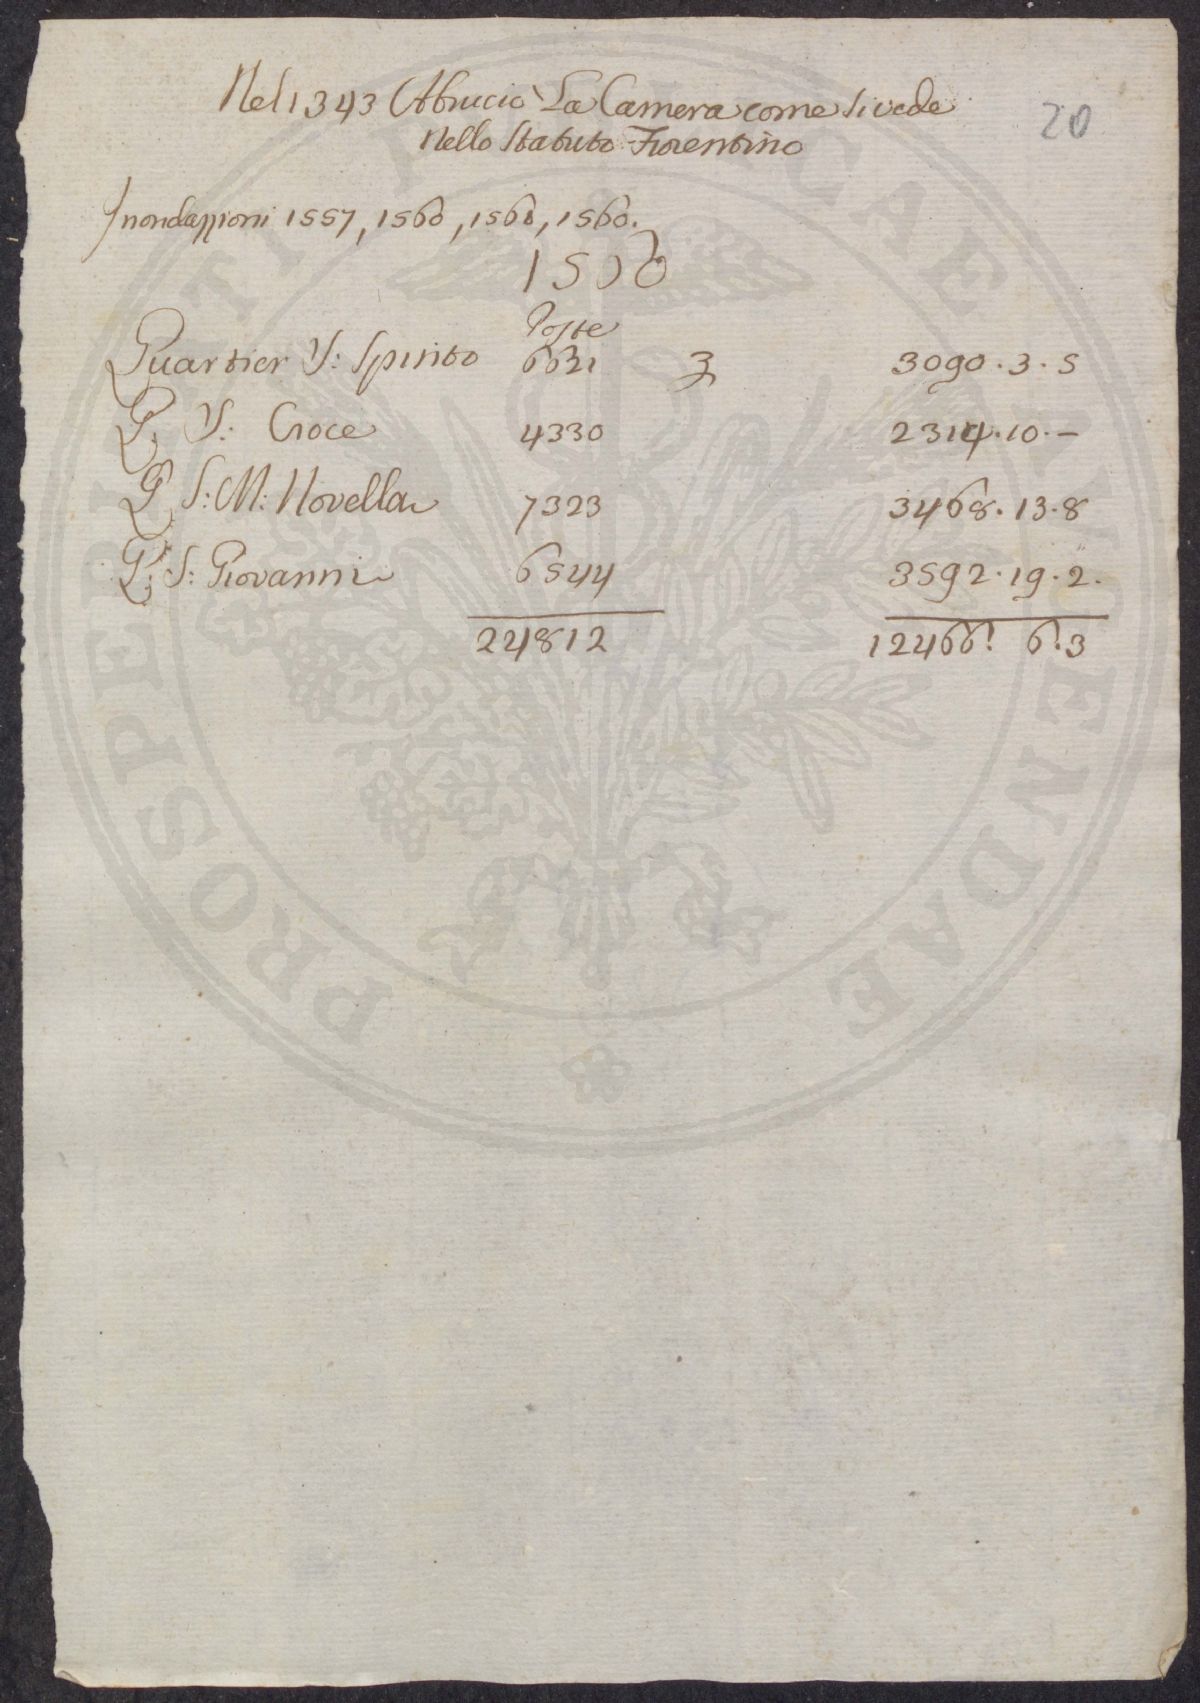 20
Nel 1343 Abruciò La Camera come si vede
nello Statuto Fiorentino
Inondazzioni 1557, 1560,
Poste
Quartier S: Spirito 6631 3090.3.5
Q. S: Croce 4330 2314.10.–
Q S: M: Novella 7323 3468.13.8
Q. S: Giovanni 6544 3592.19.2.
24812 12466. 6.3
PROSPERITATI PUBLICAE AUGENDAE